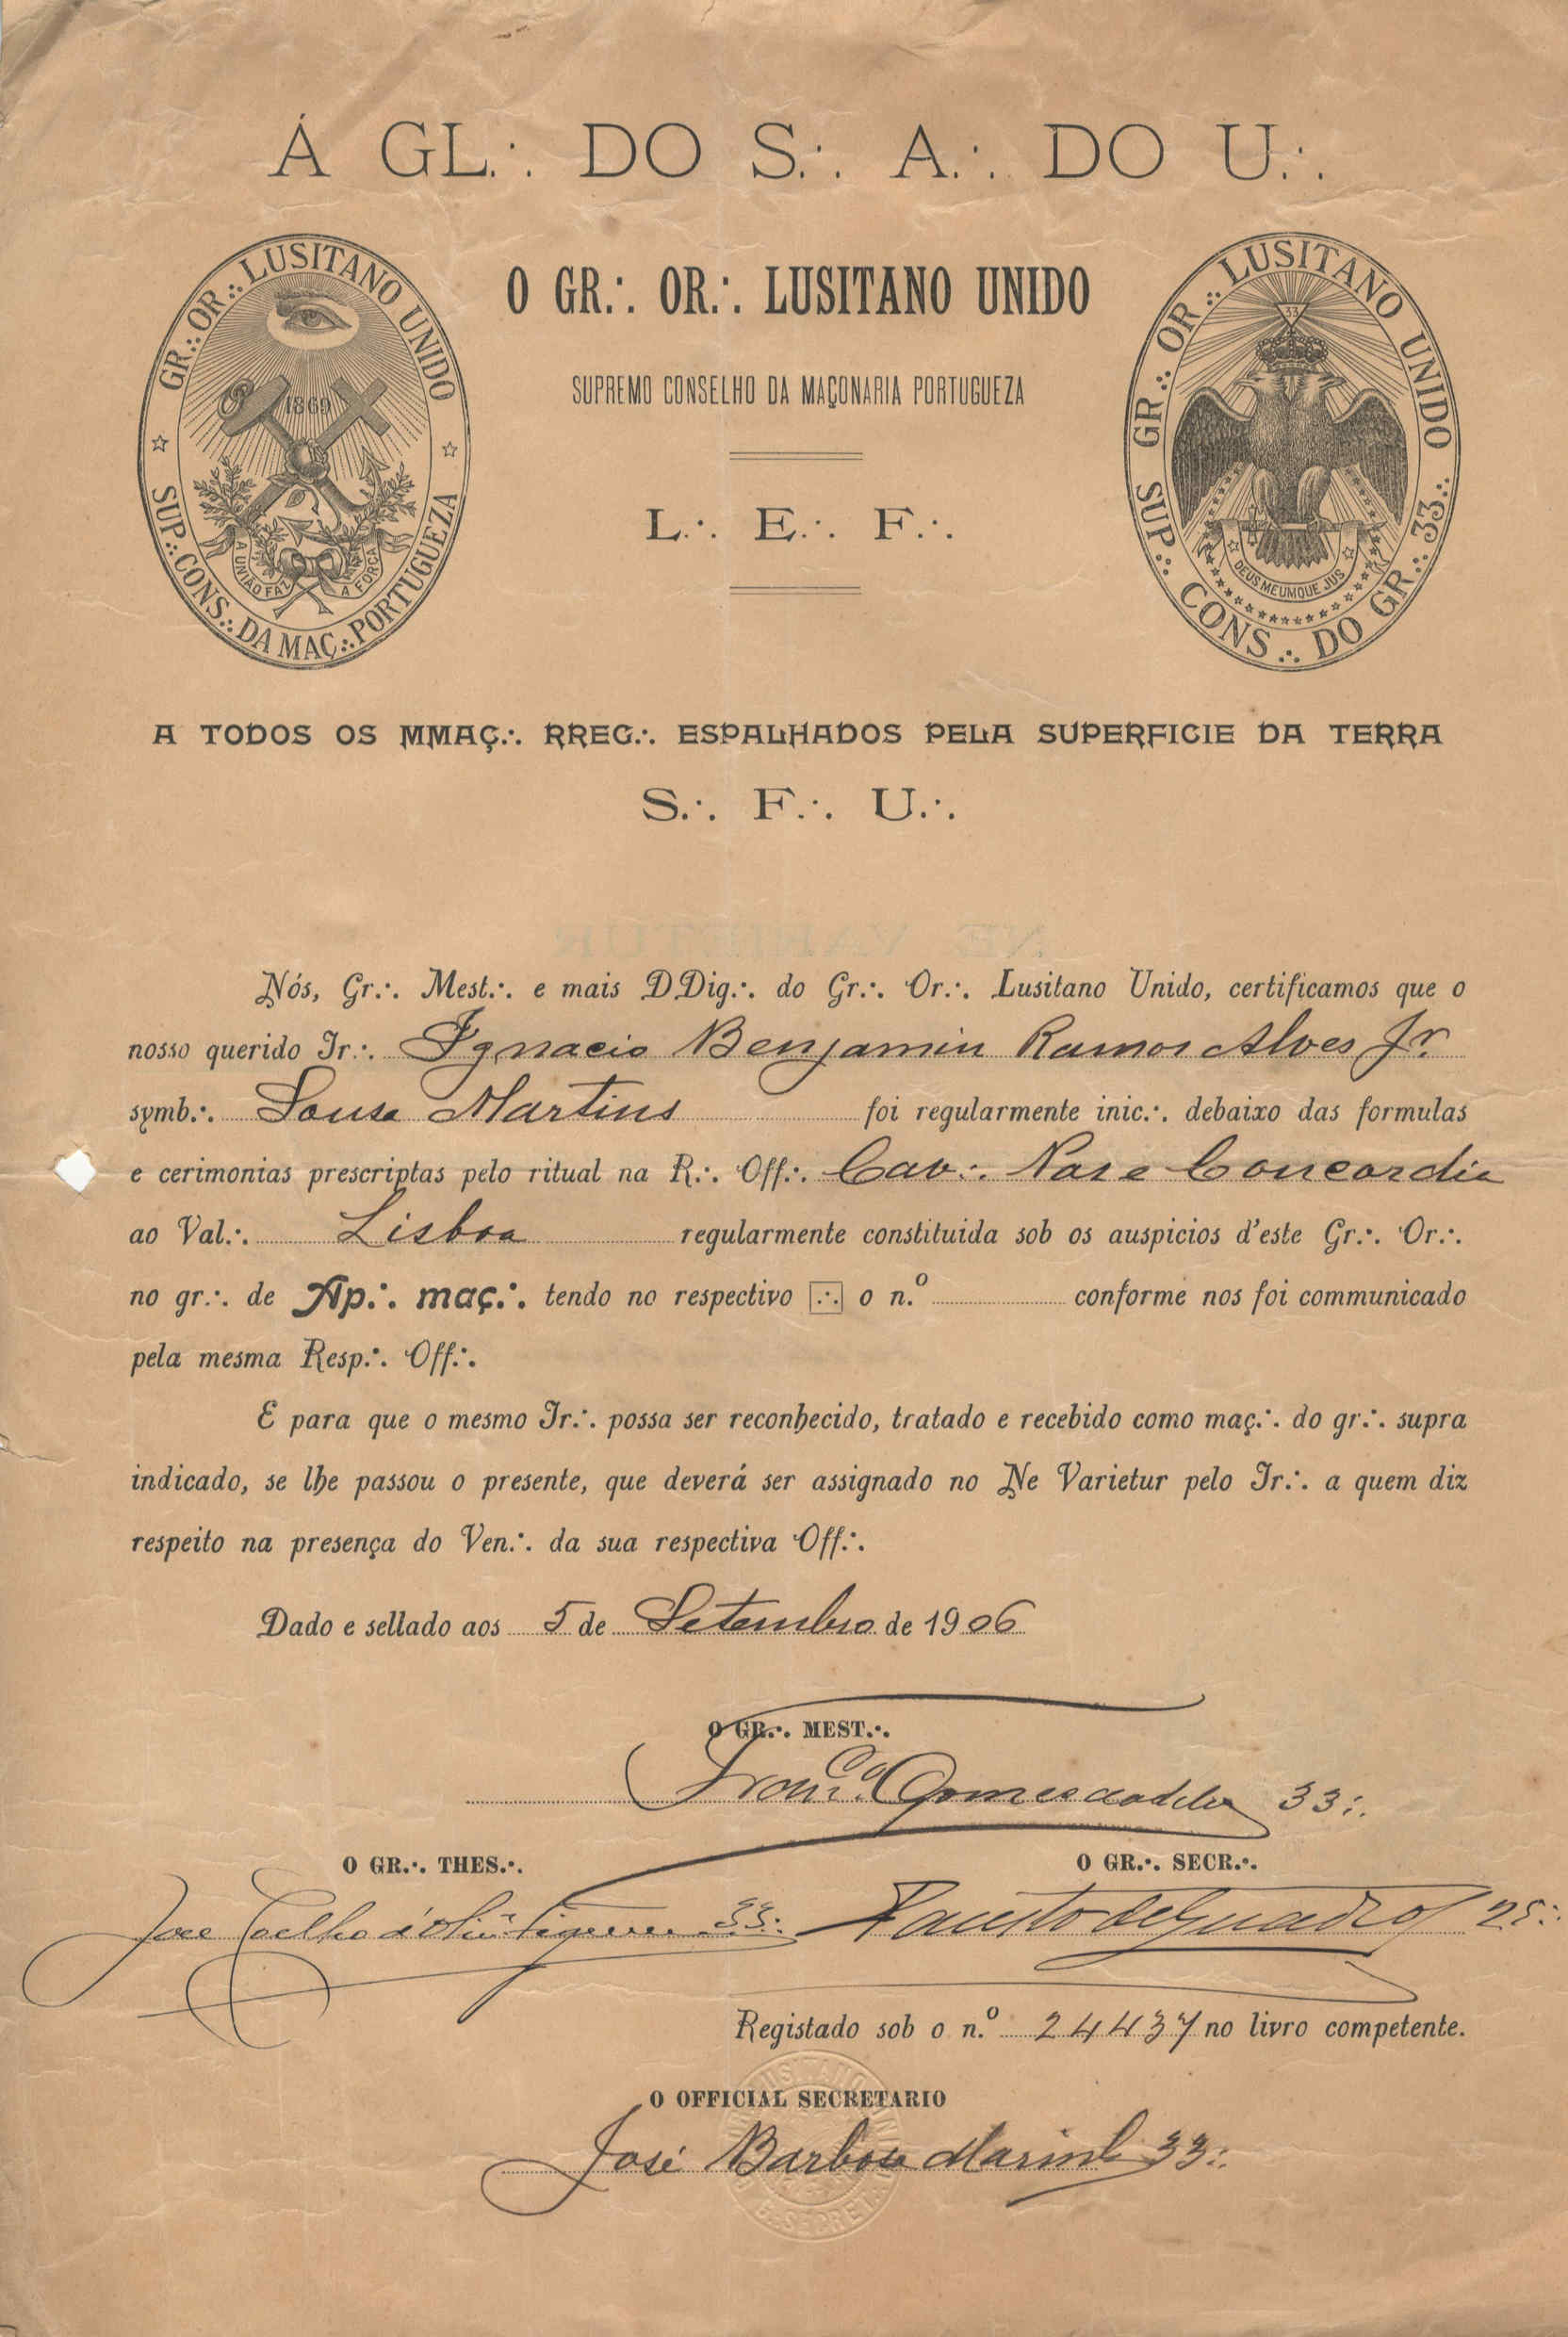 Á GL.·. DO S.·. A.·. DO U.·.
GR.·. OR.·. LUSITANO UNIDO
SUP.·. CONS.·. DA MAÇ.·. PORTUGUEZA
1869
A UNIÃO FAZ A FORÇA
O GR.·. OR.·. LUSITANO UNIDO
SUPREMO CONSELHO DA MAÇONARIA PORTUGUEZA
L.·. E.·. F.·.
GR.·. OR.·. LUSITANO UNIDO
SUP.·. CONS.·. DO GR.·. 33.·.
33
DEUS MEUMQUE JUS
A TODOS OS MMAÇ.·. RREG.·. ESPALHADOS PELA SUPERFICIE DA TERRA
S.·. F.·. U.·.
NE VARIETUR
Nós, Gr.·. Mest.·. e mais DDig.·. do Gr.·. Or.·. Lusitano Unido, certificamos que o
nosso querido Ir.·. Ignacio Benjamin Ramos Alves Jr.
symb.·. Sousa Martins foi regularmente inic.·. debaixo das formulas
e cerimonias prescriptas pelo ritual na R.·. Off.·. Cav.·. Pas e Concordia
ao Val.·. Lisboa regularmente constituida sob os auspicios d'este Gr.·. Or.·.
no gr.·. de Ap.·. maç.·. tendo no respectivo .·. o n.º conforme nos foi communicado
pela mesma Resp.·. Off.·.
E para que o mesmo Ir.·. possa ser reconhecido, tratado e recebido como maç.·. do gr.·. supra
indicado, se lhe passou o presente, que deverá ser assignado no Ne Varietur pelo Ir.·. a quem diz
respeito na presença do Ven.·. da sua respectiva Off.·.
Dado e sellado aos 5 de Setembro de 1906
O GR.·. MEST.·.
Franc.co Gomes 33.·.
O GR.·. THES.·.
O GR.·. SECR.·.
José Coelho 33.·.
Fausto de Quadros 25.·.
Registado sob o n.º 24437 no livro competente.
O OFFICIAL SECRETARIO
José Barbosa 33.·.